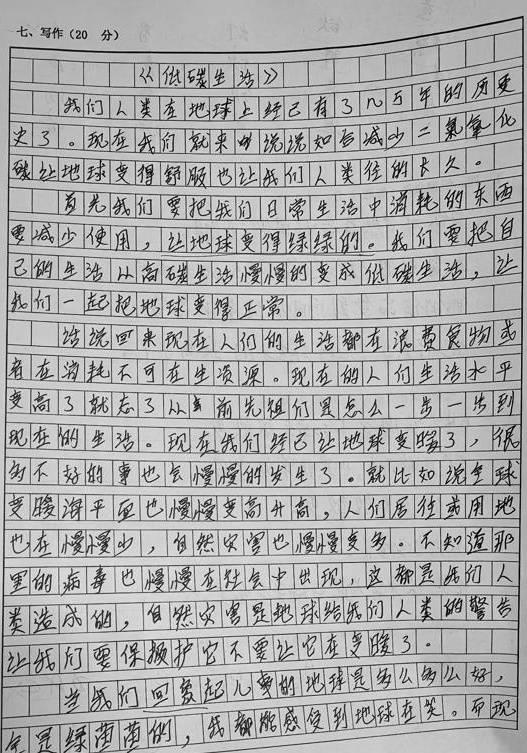 七、写作(20 分)
《低碳生活》
我们人类在地球上经已有了几万年的历史
史了。现在我们就来说说如合减少二氧氧化
碳让地球变得舒服也让我们人类住的长久。
首先我们要把我们日常生活中消耗的东西
要减少使用,让地球变得绿绿的。我们要把自
己的生活从高碳生活慢慢的变成低碳生活,让
我们一起把地球变得正常。
话说回来现在人们的生活都在浪费食物或
者在消耗不可在生资源。现在的人们生活水平
变高了就忘了从前先祖们是怎么一步一步到
现在的生活。现在我们经已让地球变暖了,很
多不好的事也会慢慢的发生了。就比如说全球
变暖海平面也慢慢变高升高,人们居住或用地
也在慢慢少,自然灾害也慢慢变多。不知道那
里的病毒也慢慢在社会中出现,这都是我们人
类造成的,自然灾害是地球给我们人类的警告
让我们要保护它不要让它在变暖了。
当我们回忆起儿事的地球是多么多么好,
全是绿茵茵的,我都能感受到地球在笑。而现